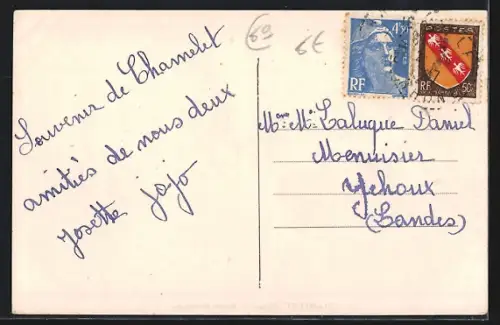 6°
6€
4F50
RF
POSTES
RF 50c
Souvenir de Chamelet
amitiés de nous deux
Josette jojo
Mme Mr Laluque Daniel
Menuisier
Ychoux
(Landes)